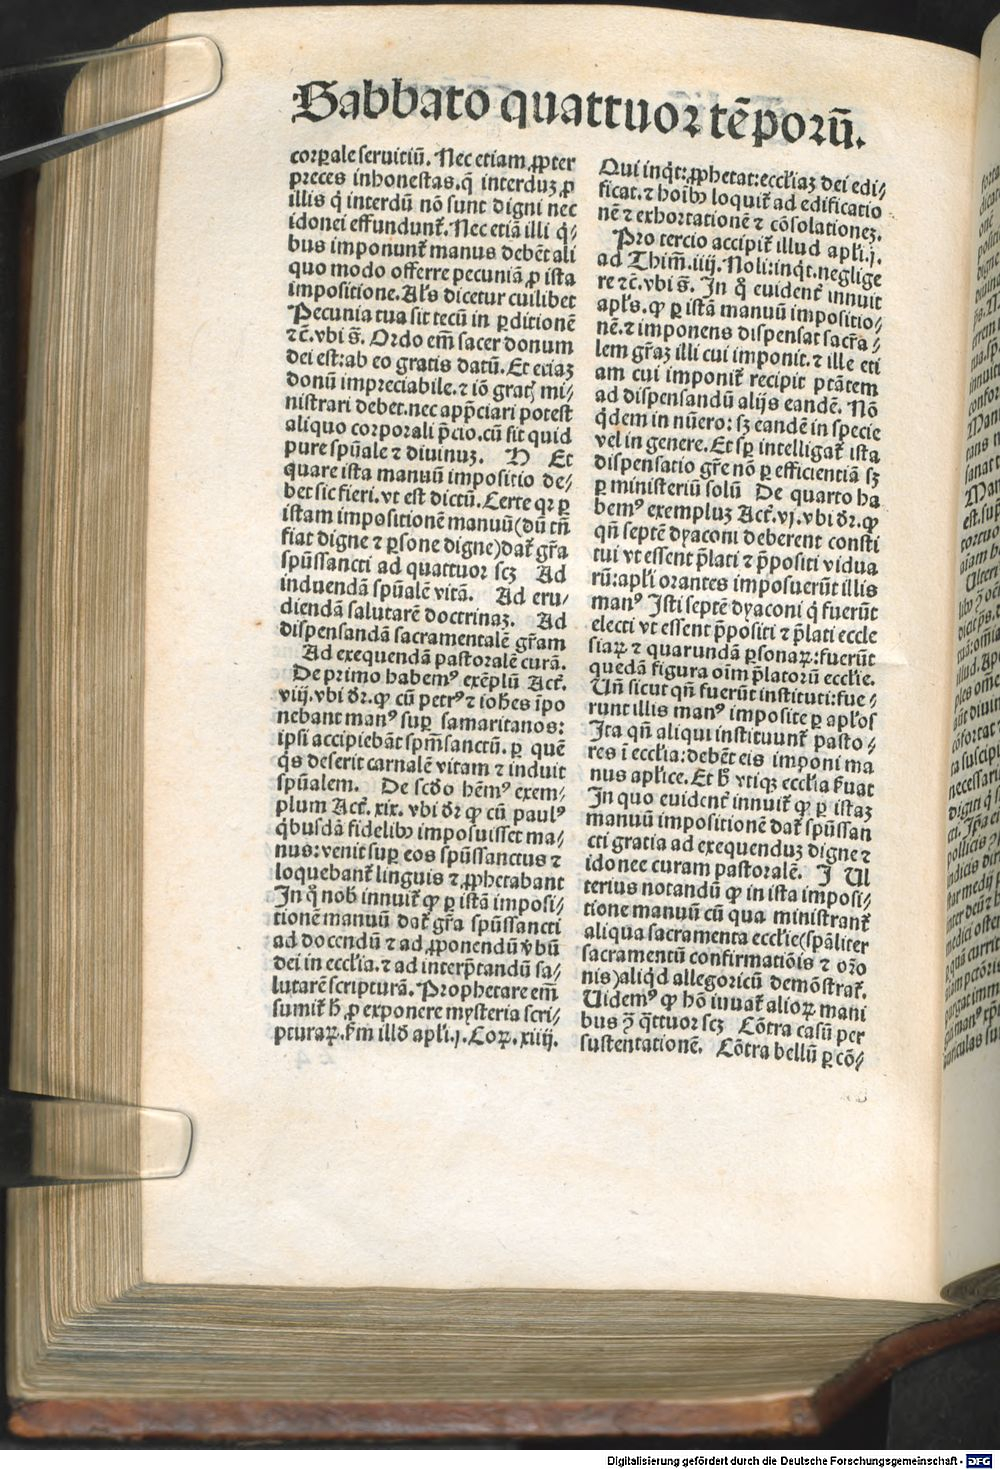 Sabbato quattuor tẽporũ.
corꝑale seruitiũ. Nec etiam ꝓpter
preces inhonestas. q̃ interduʒ ꝓ
illis q̇ interdũ nõ sunt digni nec
idonei effundunt᷑. Nec etiã illi q̇⸗
bus imponunt᷑ manus debẽt ali
quo modo offerre pecuniã ꝓ ista
impositione. Al's dicetur cuilibet
Pecunia tua sit tecũ in ꝑditionẽ
⁊c̃. vbi s̃. Ordo em̃ sacer donum
dei est: ab eo gratis datũ. Et etiaʒ
donũ impreciabile. ⁊ iõ gratꝭ mi⸗
nistrari debet. nec app̃ciari potest
aliquo corporali p̃cio. cũ sit quid
pure spũale ⁊ diuinuʒ. H Et
quare ista manuũ impositio de⸗
bet sic fieri. vt est dictũ. Certe qꝛ ꝑ
istam impositionẽ manuũ (dũ tñ
fiat digne ⁊ ꝑsone digne) dat᷑ gr̃a
spũssancti ad quattuor scʒ Ad
induendã spũalẽ vitã. Ad eru⸗
diendã salutarẽ doctrinaʒ. Ad
dispensandã sacramentalẽ gr̃am
Ad exequendã pastoralẽ curã.
De primo habemꝰ exẽplũ Act᷑.
viij. vbi dꝛ̃. ꝙ cũ petrꝰ ⁊ ioh̃es ipo
nebant manꝰ suꝑ samaritanos:
ipsi accipiebãt spm̃sanctũ. ꝑ quẽ
q̇s deserit carnalẽ vitam ⁊ induit
spũalem. De scd̃o hẽmꝰ exem⸗
plum Act᷑. xix. vbi dꝛ̃ ꝙ cũ paulꝰ
q̇busdã fidelibꝰ imposuisset ma⸗
nus: venit suꝑ eos spũssanctus ⁊
loquebant᷑ linguis ⁊ ꝓphetabant
In q̊ nob̃ innuit᷑ ꝙ ꝑ istã imposi⸗
tionẽ manuũ dat᷑ gr̃a spũssancti
ad docendũ ⁊ ad ꝓponendũ v̊bũ
dei in eccl'ia. ⁊ ad interp̃tandũ sa⸗
lutarẽ scripturã. Prophetare em̃
sumit᷑ h̃ ꝓ exponere mysteria scri⸗
pturaꝝ. km̃ illd̃ apl'i. j. Coꝝ. xiiij.
Qui inq̇t: ꝓphetat: eccl'iaʒ dei edi⸗
ficat. ⁊ hoĩbꝰ loquit᷑ ad edificatio
nẽ ⁊ exhortationẽ ⁊ cõsolationeʒ.
Pro tercio accipit᷑ illud apl'i. j.
ad Thim̃. iiij. Noli: inq̇t. neglige
re ⁊c̃. vbi s̃. In q̊ euident᷑ innuit
apl's. ꝙ ꝑ istã manuũ impositio⸗
nẽ. ⁊ imponens dispensat sacr̃a⸗
lem gr̃aʒ illi cui imponit. ⁊ ille eti
am cui imponit᷑ recipit ptãtem
ad dispensandũ alijs eandẽ. Nõ
q̇dem in nũero: sʒ eandẽ in specie
vel in genere. Et sꝑ intelligat᷑ ista
dispensatio gr̃e nõ ꝑ efficientiã sʒ
ꝑ ministeriũ solũ De quarto ha
bemꝰ exempluʒ Act᷑. vj. vbi dꝛ̃. ꝙ
qñ septẽ dyaconi deberent consti
tui vt essent p̃lati ⁊ p̃positi vidua
rũ: apl'i orantes imposuerũt illis
manꝰ Isti septẽ dyaconi q̇ fuerũt
electi vt essent p̃positi ⁊ p̃lati eccle
siaꝝ ⁊ quarundã ꝑsonaꝝ: fuerũt
quedã figura oĩm p̃latorũ eccl'ie.
Uñ sicut qñ fuerũt instituti: fue⸗
runt illis manꝰ imposite ꝑ apl'os
Ita qñ aliqui instituunt᷑ pasto⸗
res ĩ eccl'ia: debẽt eis imponi ma
nus apl'ice. Et h̃ vtiqʒ eccl'ia ẜuat
In quo euident᷑ innuit᷑ ꝙ ꝑ istaʒ
manuũ impositionẽ dat᷑ spũssan
cti gratia ad exequenduʒ digne ⁊
idonee curam pastoralẽ. I Ul
terius notandũ ꝙ in ista imposi⸗
tione manuũ cũ qua ministrant᷑
aliqua sacramenta eccl'ie (spãliter
sacramentũ confirmatiõis ⁊ oꝛõ
nis) aliq̇d allegoricũ demõstrat᷑.
Uidemꝰ ꝙ hõ iuuat᷑ alioꝝ mani
bus ꝫ̃ q̃ttuor scʒ Cõtra casũ per
sustentationẽ. Cõtra bellũ ꝑ cõ⸗
Digitalisierung gefördert durch die Deutsche Forschungsgemeinschaft - DFG